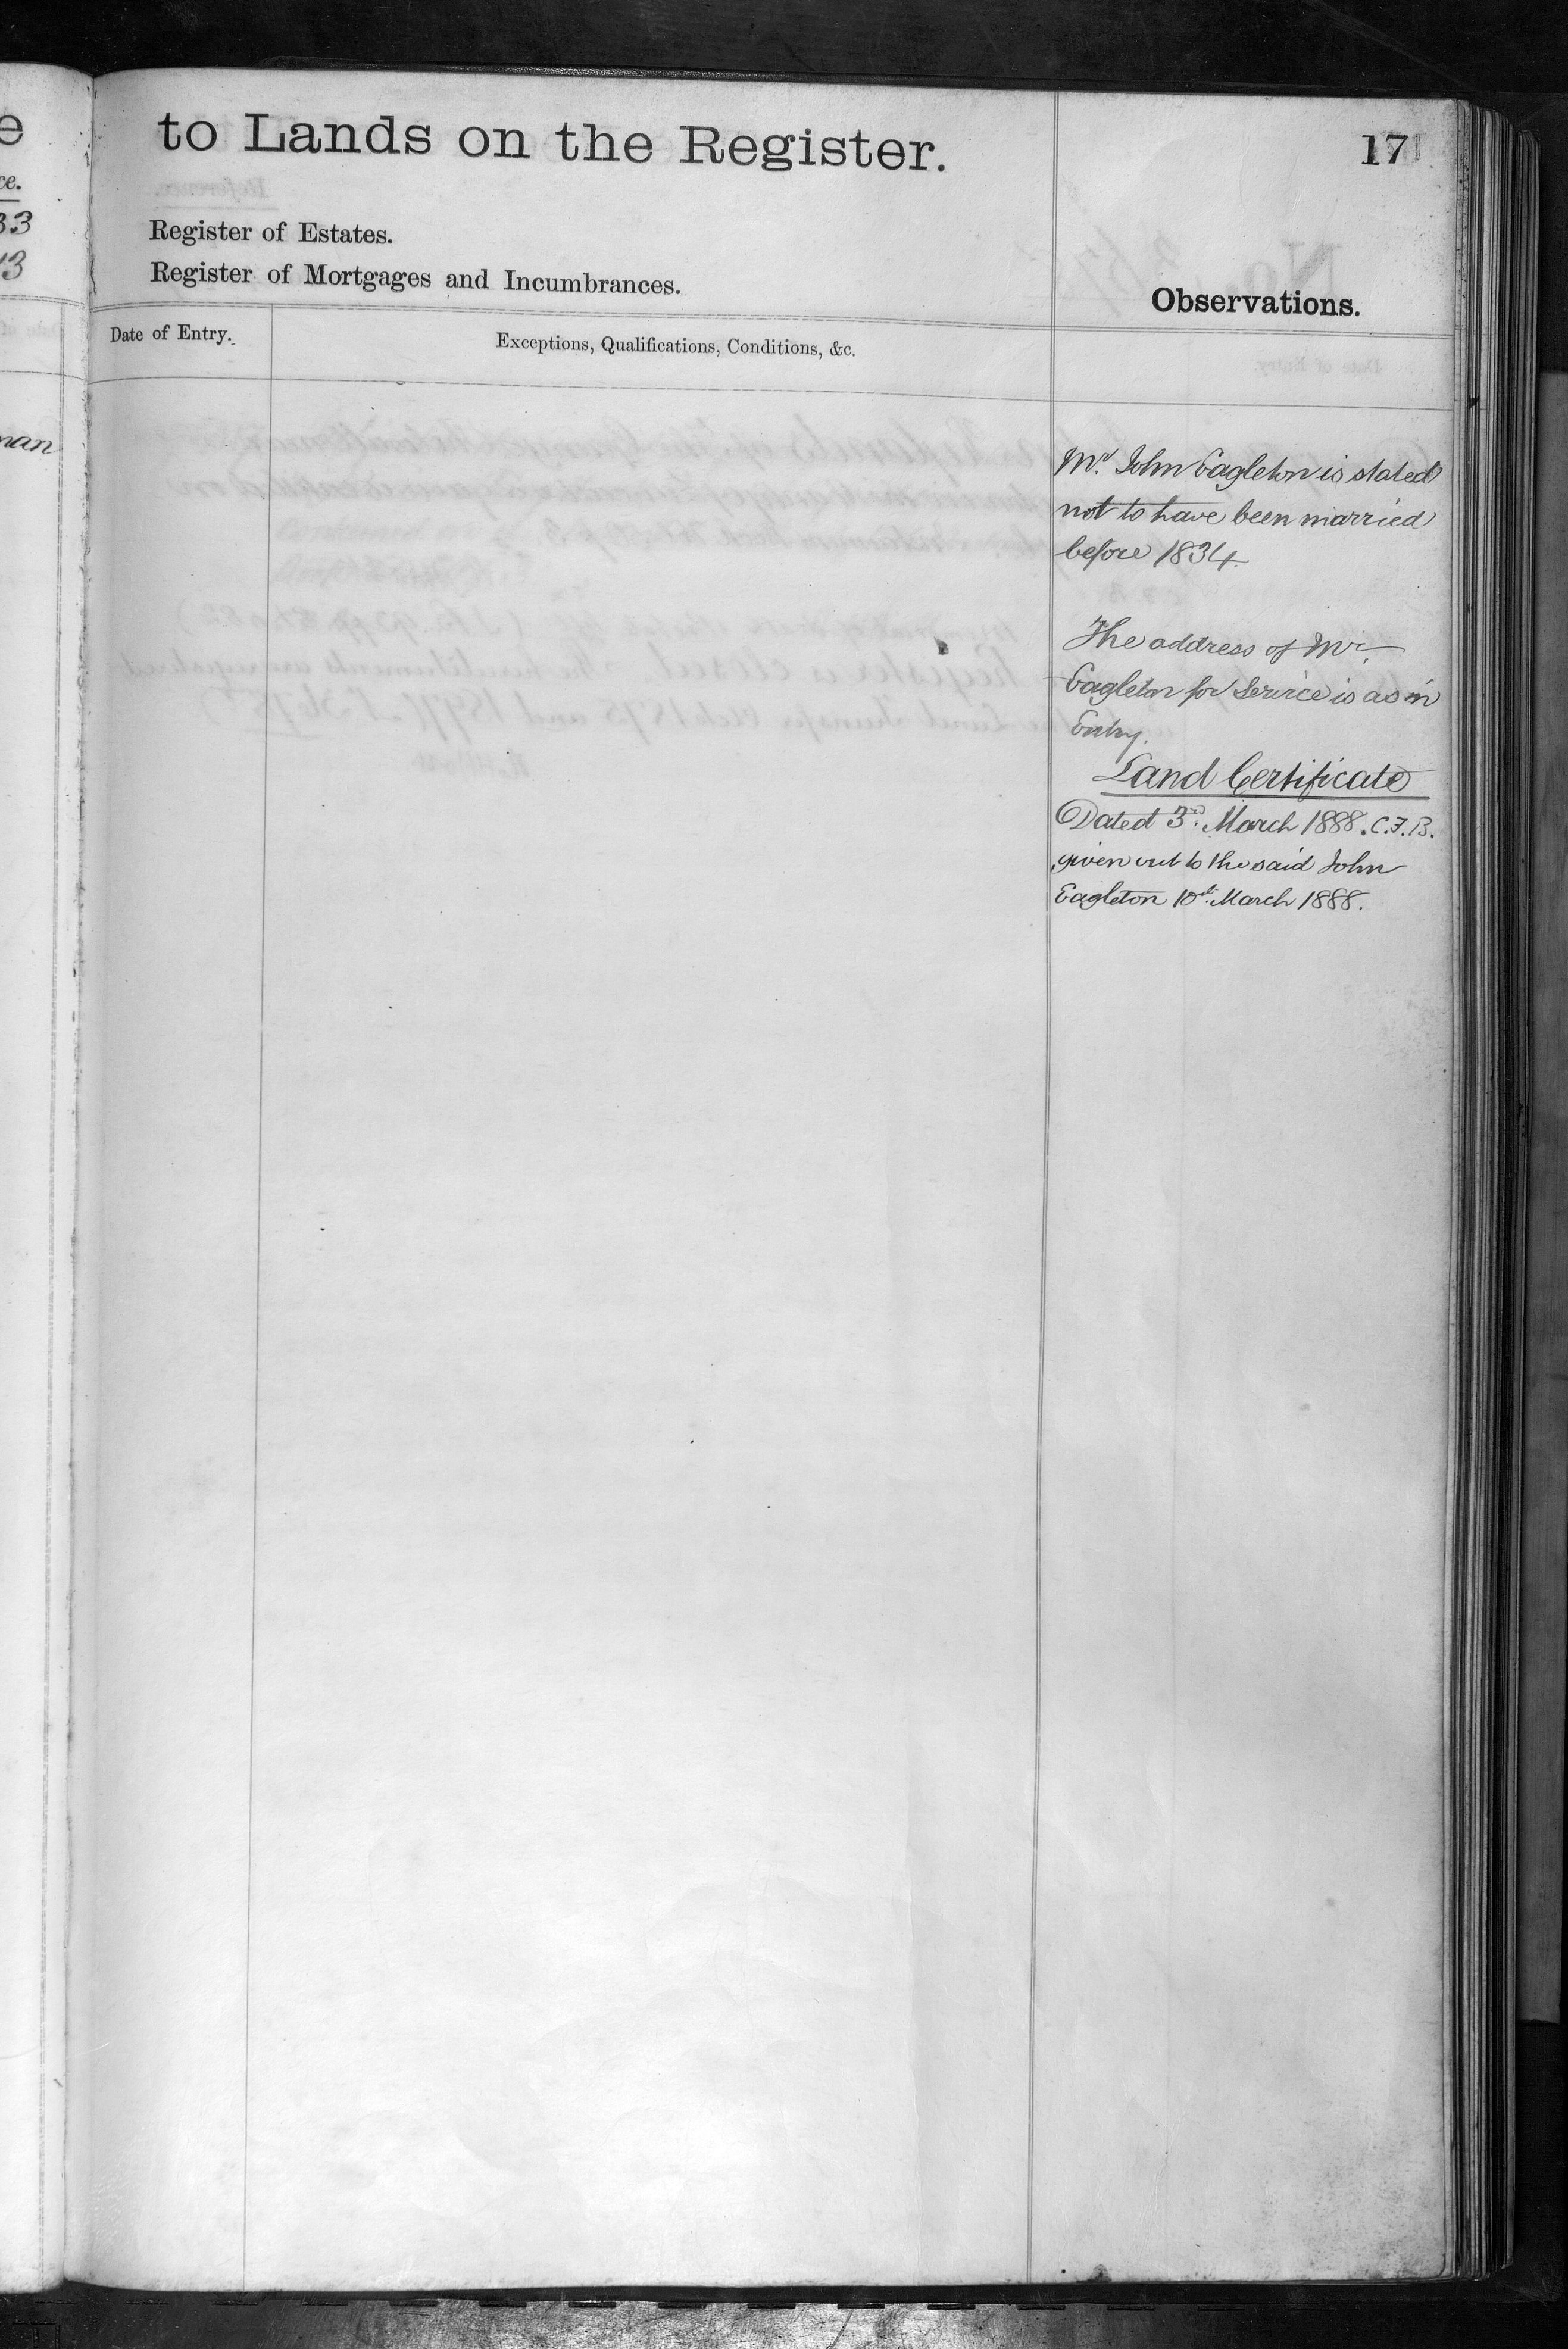 to Lands on the Register.
17
Register of Estates.
Register of Mortgages and Incumbrances.
Observations.
Date of Entry.
Exceptions, Qualifications, Conditions, &c.
Mr. John Eagleton is stated
not to have been married
before 1834.
The address of Mr.
Eagleton for Service is as in
Entry.
Land Certificate
Dated 3rd. March 1888. C.F.B.
given out to the said John
Eagleton 10th. March 1888.